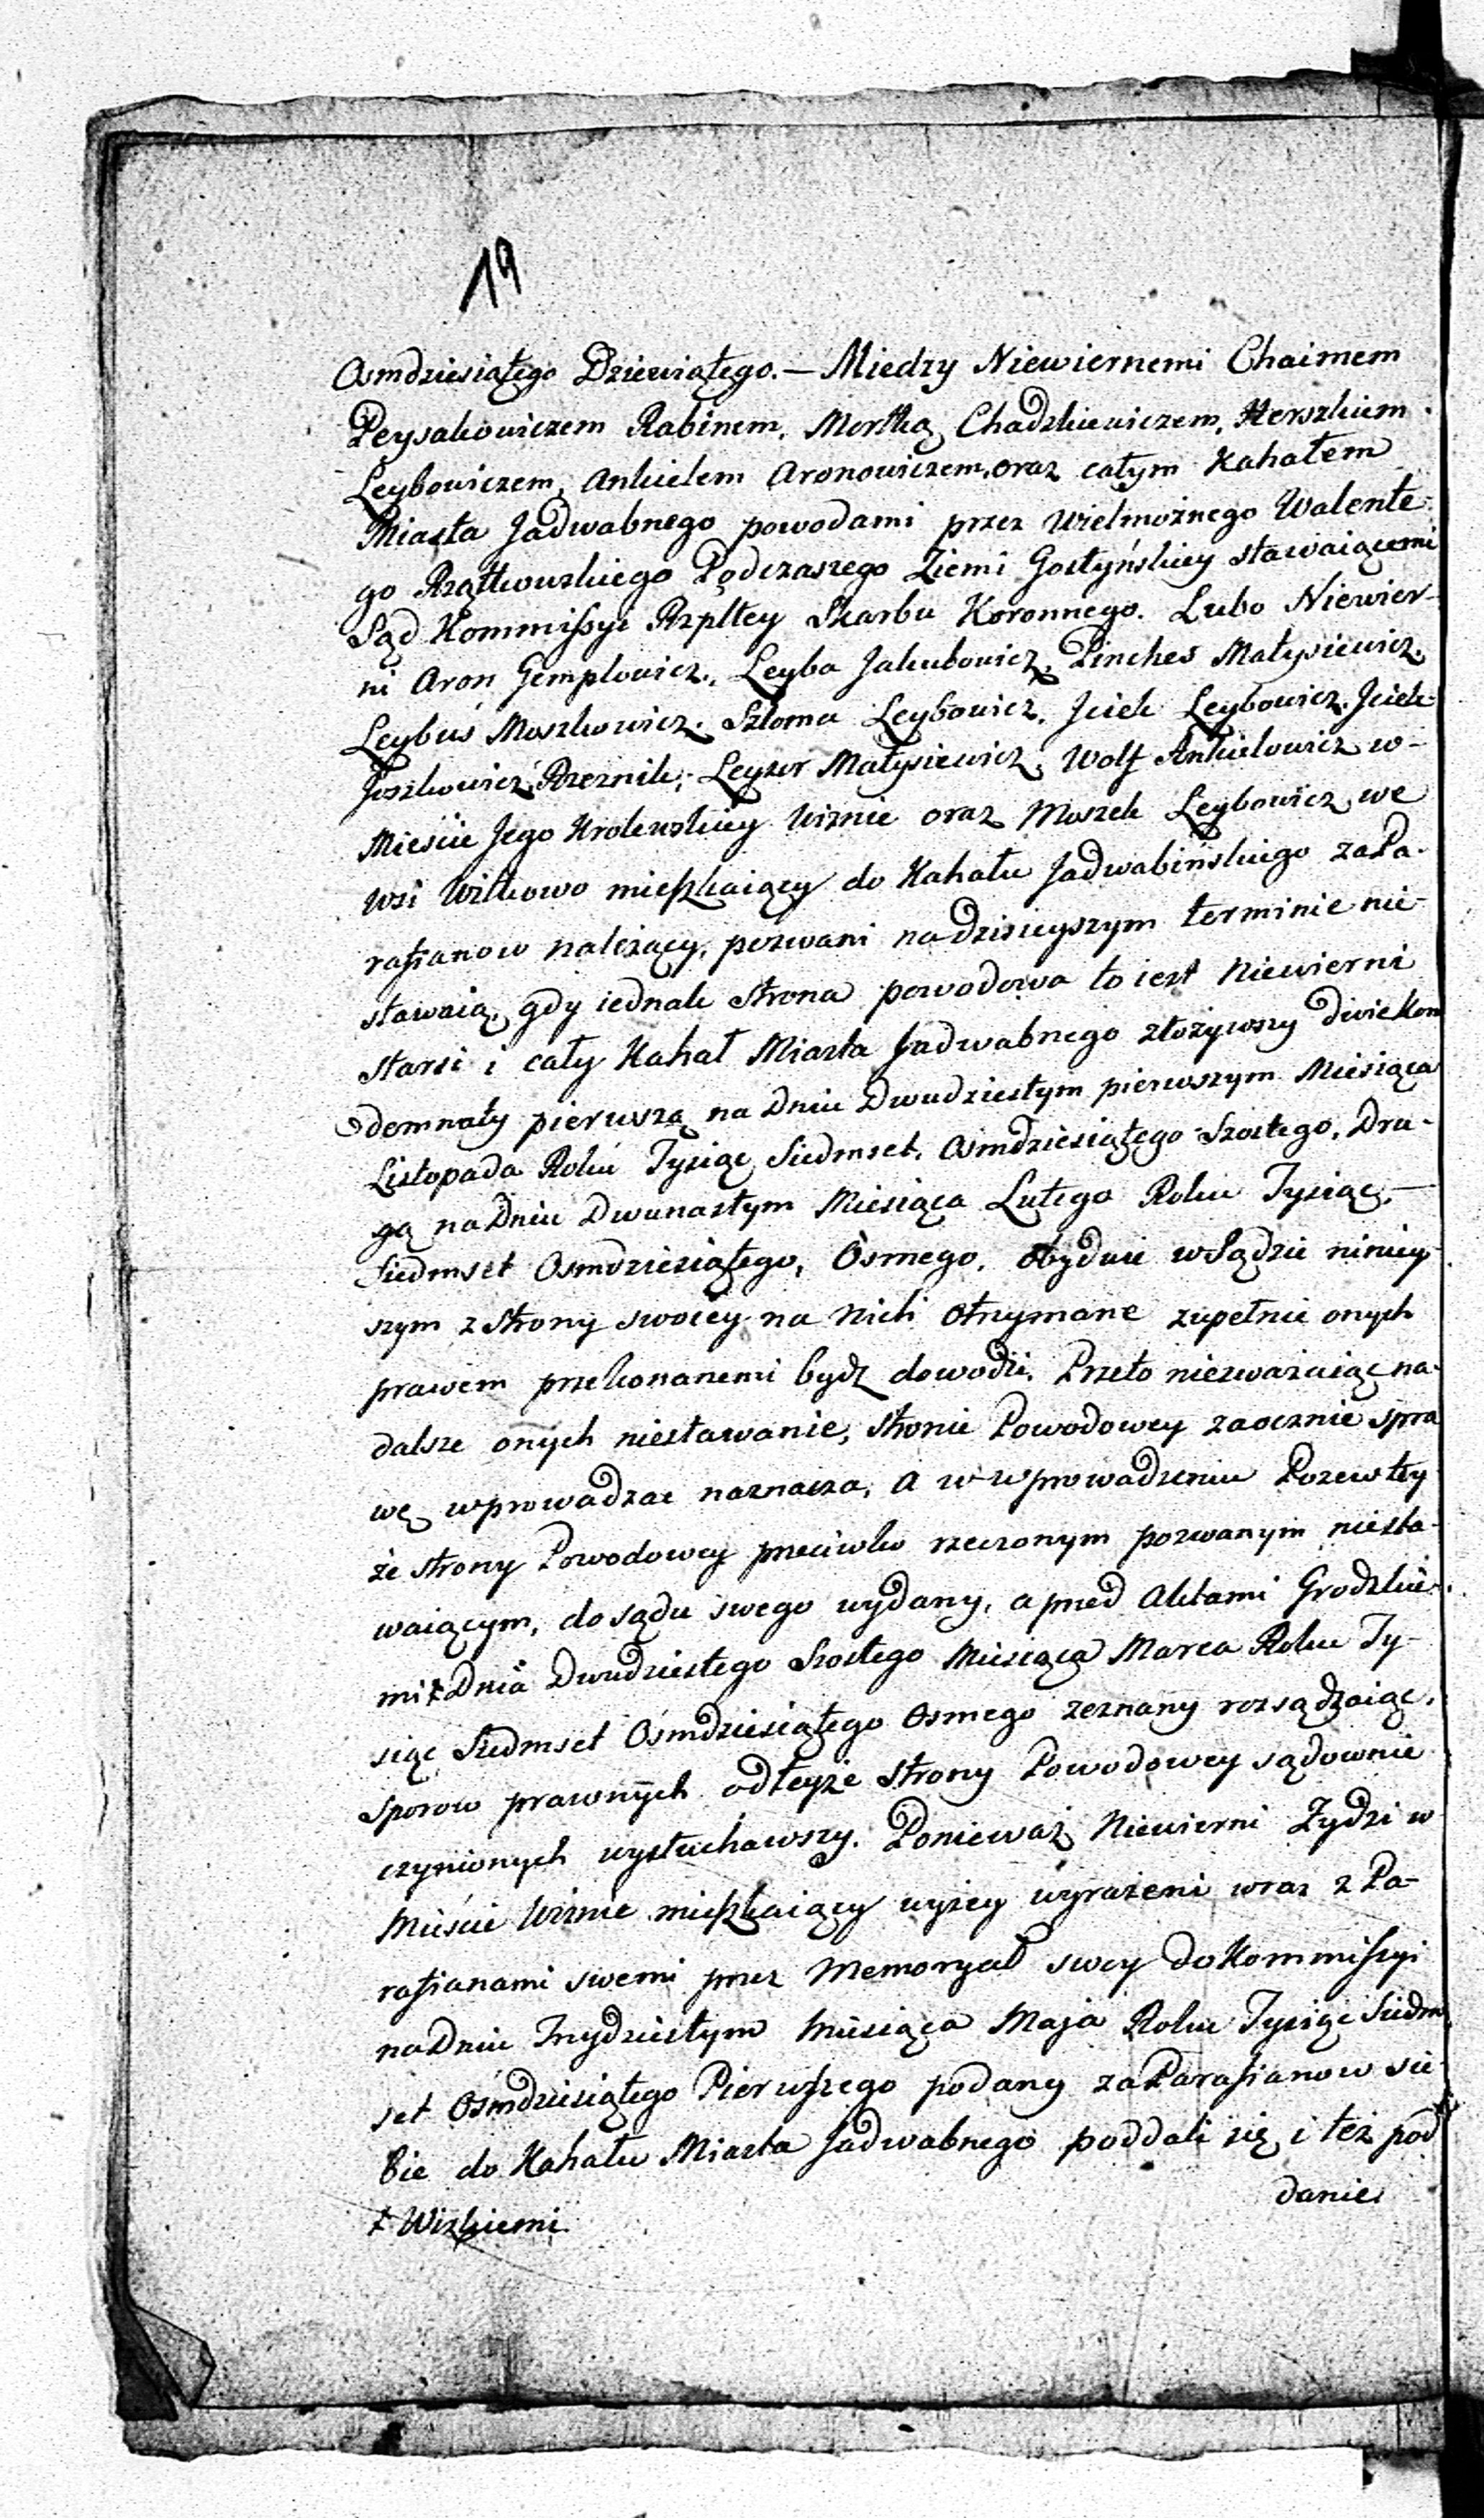 19
Osmdziesiątego Dziewiątego. — Miedzy Niewiernemi Chaimem
Peysakowiczem Rabinem, Mortką Chadzkiewiczem, Herszkiem
Leybowiczem, Ankielem Aronowiczem, oraz całym Kahałem
Miasta Jadwabnego powodami przez Wielmożnego Walente-
go Rzątkowskiego Podczaszego Ziemi Gostyńskiey stawaiącemi
Sąd Kommissyi Rzpltey Skarbu Koronnego. Lubo Niewier-
ni Aron Gemplowicz, Leyba Jakubowicz, Pinches Matysiewicz,
Leybuś Moszkowicz, Szloma Leybowicz, Jciek Leybowicz, Jciek
Joszkowicz, Rzeznik, Leyzer Matysiewicz, Wolf Ankielowicz w-
Mieście Jego Krolewskiey Wiznie oraz Moszek Leybowicz we
wsi Witkowo mieszkaiący do Kahału Jadwabińskiego za Pa-
rafianow należący, pozwani na dzisieyszym terminie nie-
stawaią, gdy iednak strona powodowa to iest Niewierni
starsi i cały Kahał Miasta Jadwabnego złożywszy dwie Kon
demnaty pierwszą na Dniu Dwudziestym pierwszym Miesiąca
Listopada Roku Tysiąc Siedmset Osmdziesiątego Szostego, Dru-
gą na Dniu Dwunastym Miesiąca Lutego Roku Tysiąc, —
Siedmset Osmdziesiątego, Osmego, obydwie w Sądzie niniey-
szym z strony swoiey na Nich otrzymane zupełnie onych
prawem przekonanemi bydź dowodzi. Przeto niezważaiąc na-
dalsze onych niestawanie, stronie Powodowey zaocznie spra
wę wprowadzac naznacza, a w wprowadzeniu Pozew tey
że strony Powodowey przeciwko rzeczonym pozwanym niesta-
waiącym, do sądu swego wydany, a przed Aktami Grodzkie-
mi ŧ Dnia Dwudziestego Szostego Miesiąca Marca Roku Ty-
siąc Siedmset Osmdziesiątego Osmego zeznany rozsądzaiąc,
sporow prawnych od teyże strony Powodowey sądownie
czynionych wysłuchawszy. Ponieważ Niewierni Zydzi w
Mieście Wiznie mieszkaiący wyżey wyrażeni wraz z Pa-
rafianami swemi przez Memoryał swey do Kommissyi
na Dniu Trzydziestym Miesiąca Maja Roku Tysiąc Siedm
set Osmdziesiątego Pierwszego podany za Parafianow sie-
bie do Kahału Miasta Jadwabnego poddali się i też pod
danie
ŧ Wizkiemi